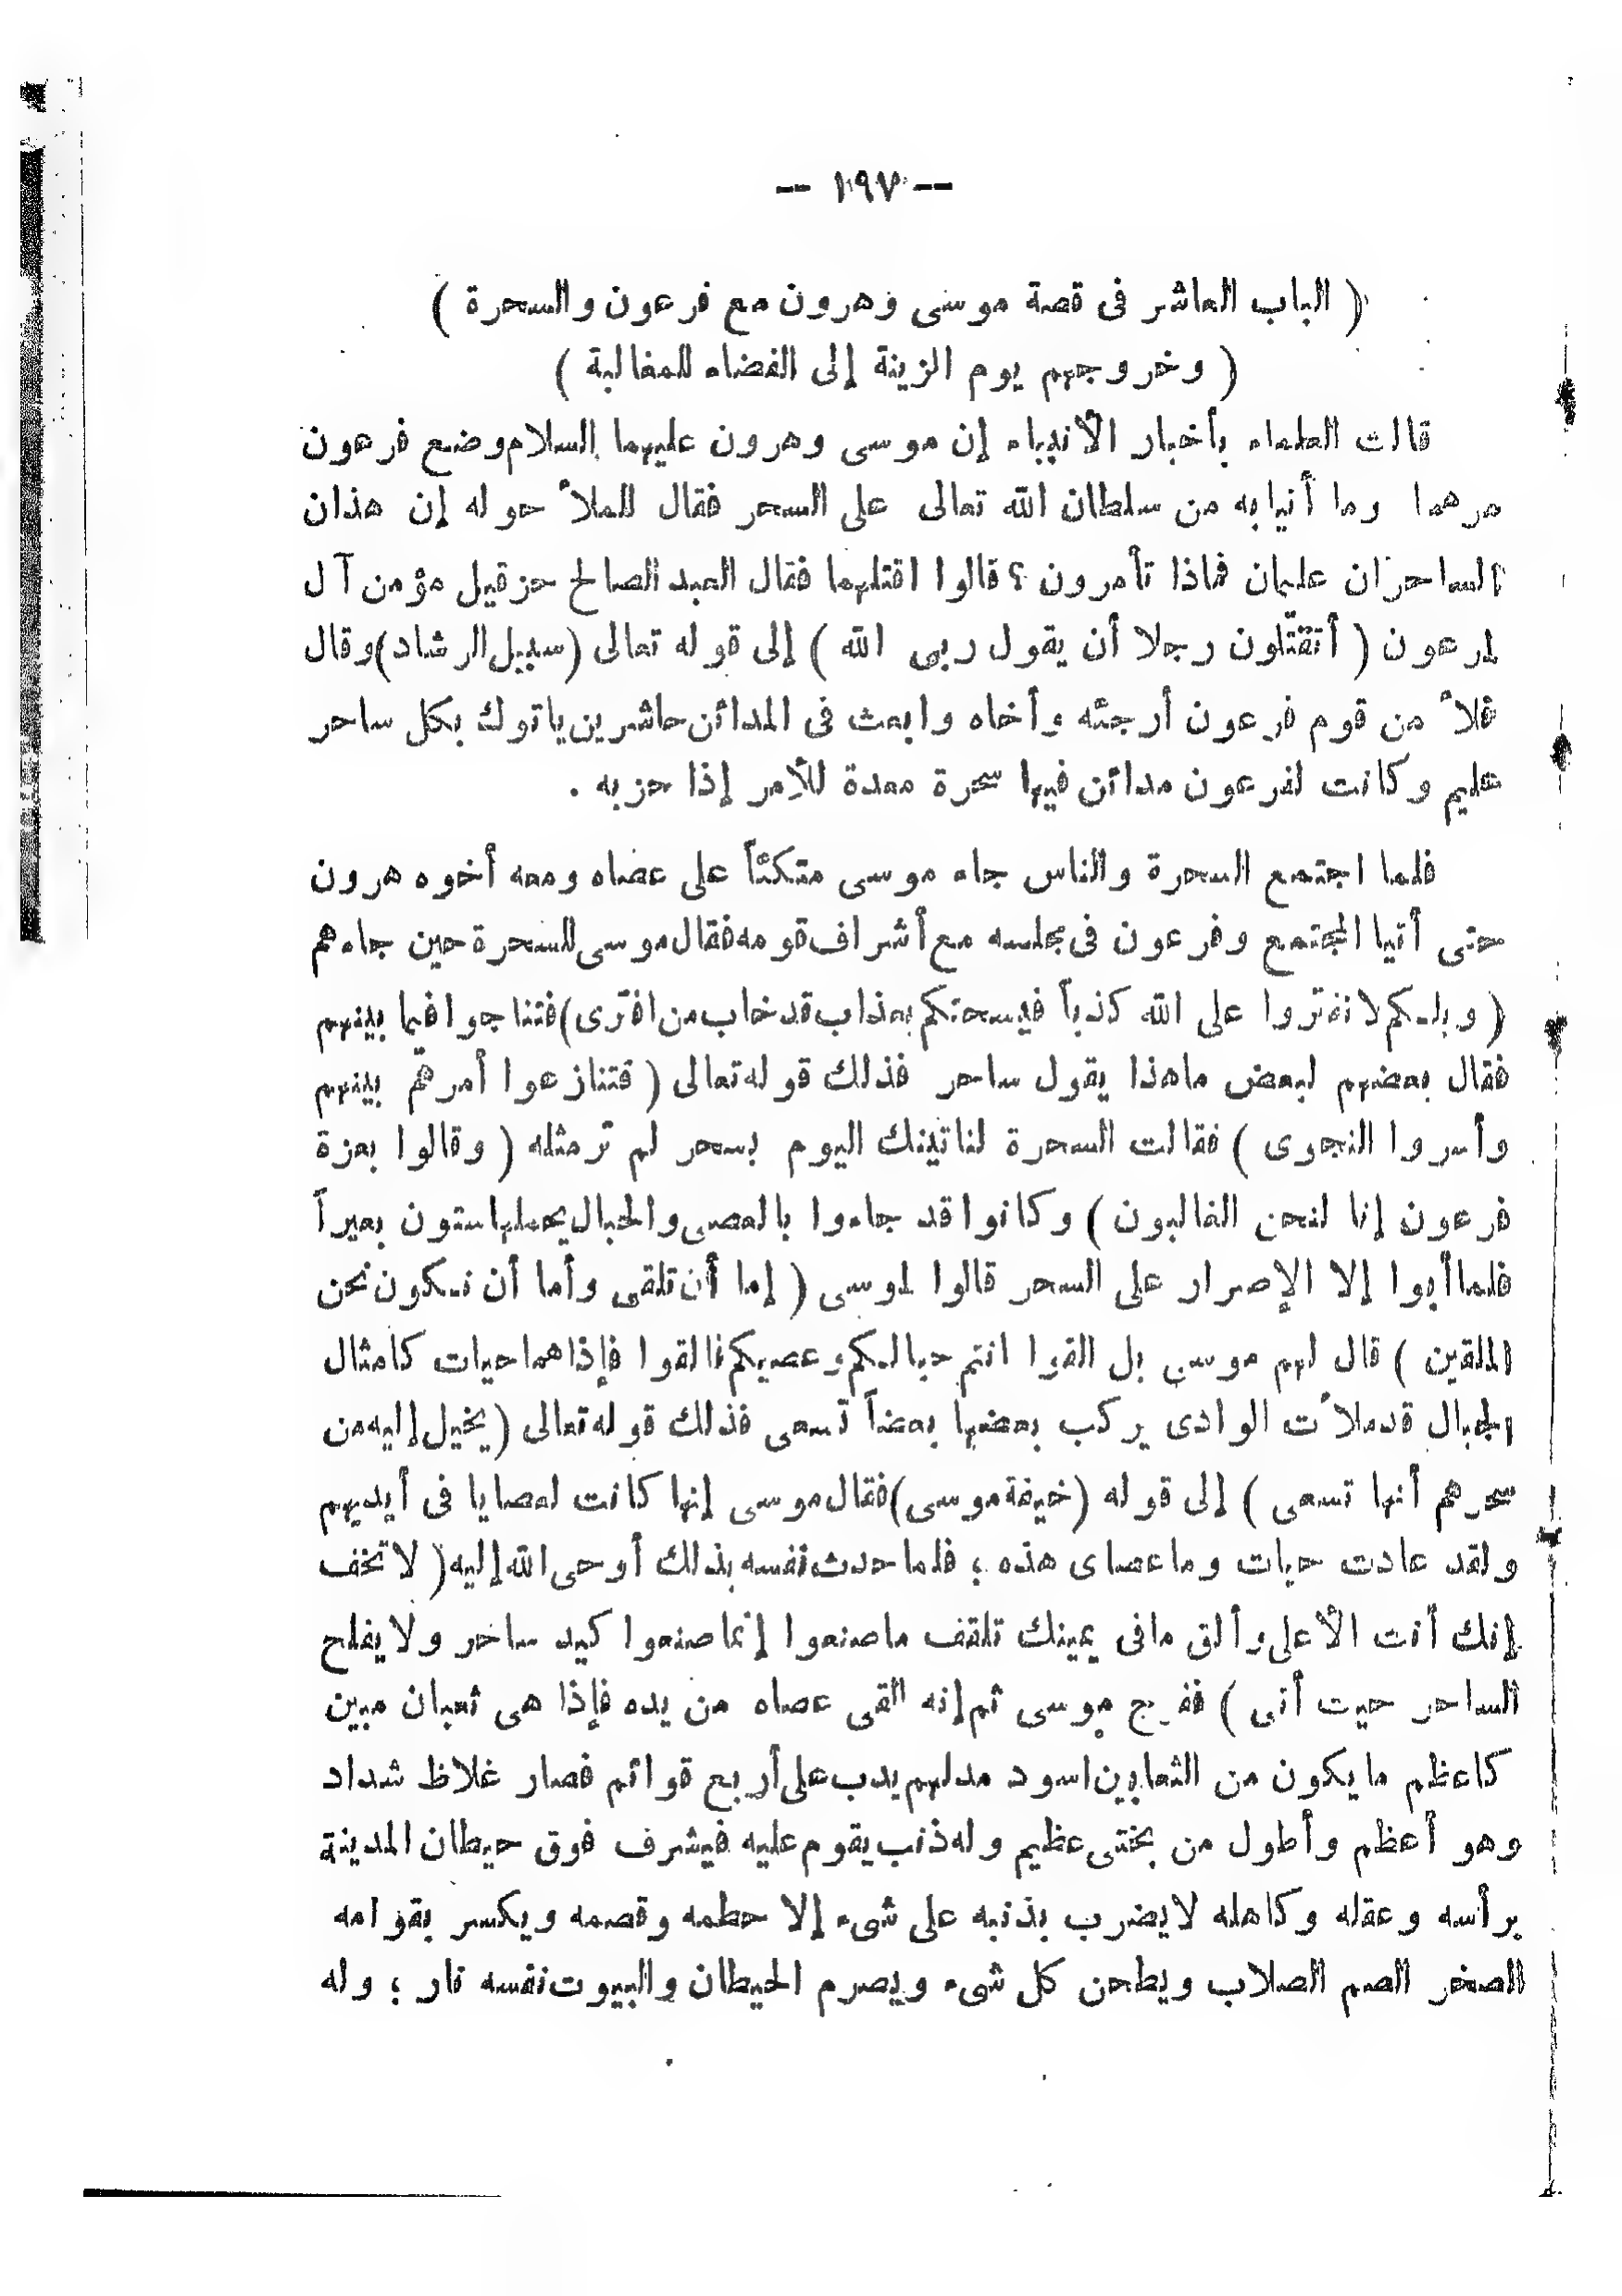 — ١٩٧ —
( الباب العاشر فى قصة موسى وهرون مع فرعون والسحرة )
( وخروجهم يوم الزينة إلى الفضاء للمغالبة )
قالت العلماء بأخبار الأنبياء إن موسى وهرون عليهما السلام وضع فرعون
مرهما وما أنيابه من سلطان الله تعالى على السحر فقال للملأ حوله إن هذان
الساحران عليمان فماذا تأمرون ؟ قالوا اقتلهما فقال العبد الصالح حزقيل مؤمن آل
لرعون ( أتقتلون رجلا أن يقول ربى الله ) إلى قوله تعالى (سبيل الرشاد) وقال
فلأ من قوم فرعون أرجئه وأخاه وابعث فى المدائن حاشرين ياتوك بكل ساحر
عليم وكانت لفرعون مدائن فيها سحرة معدة للأمر إذا حزبه .
فلما اجتمع السحرة والناس جاء موسى متكئاً على عصاه ومعه أخوه هرون
حتى أتيا المجتمع وفرعون فى مجلسه مع أشراف قومه فقال موسى للسحرة حين جاءهم
( ويلكم لا تفتروا على الله كذباً فيسحتكم بعذاب قد خاب من افترى) فتناجوا فيما بينهم
فقال بعضهم لبعض ما هذا يقول ساحر فذلك قوله تعالى ( فتنازعوا أمرهم بينهم
وأسروا النجوى ) فقالت السحرة لناتينك اليوم بسحر لم تر مثله ( وقالوا بعزة
فرعون إنا لنحن الغالبون ) وكانوا قد جاءوا بالعصى والحبال يحملها ستون بعيراً
فلما أبوا إلا الإصرار على السحر قالوا لموسى ( إما أن تلقى وأما أن نكون نحن
الملقين ) قال لهم موسى بل القوا انتم حبالكم وعصيكم فالقوا فإذا هما حيات كامثال
الجبال قد ملأت الوادى يركب بعضها بعضاً تسعى فذلك قوله تعالى (يخيل إليه من
سحرهم أنها تسعى ) إلى قوله (خيفة موسى) فقال موسى إنها كانت لعصايا فى أيديهم
ولقد عادت حيات وما عصاى هذه ؛ فلما حدث نفسه بذلك أوحى الله إليه ( لا تخف
إنك أنت الأعلى وألق مافى يمينك تلقف ماصنعوا إنما صنعوا كيد ساحر ولا يفلح
الساحر حيت أتى ) ففرج موسى ثم إنه القى عصاه من يده فإذا هى ثعبان مبين
كاعظم ما يكون من الثعابين اسود مدلهم يدب على أربع قوائم فصار غلاظ شداد
وهو أعظم وأطول من بختى عظيم وله ذنب يقوم عليه فيشرف فوق حيطان المدينة
برأسه وعقله وكاهله لا يضرب بذنبه على شىء إلا حطمه وقصمه ويكسر بقوامه
الصخر الصم الصلاب ويطحن كل شىء ويصرم الحيطان والبيوت نفسه نار ؛ وله